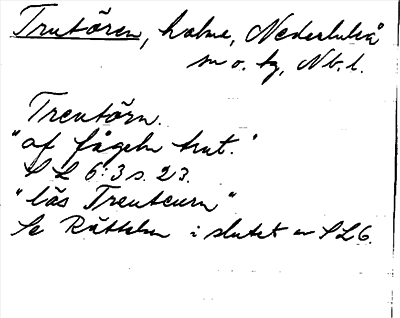 Trutören, holme, Nederluleå
sn o. tg, Nb. l.
Treutörn.
"af fågeln trut."
SL 6:3 s. 23.
"läs Treuteurn"
Se Rättelser i slutet av SL6.